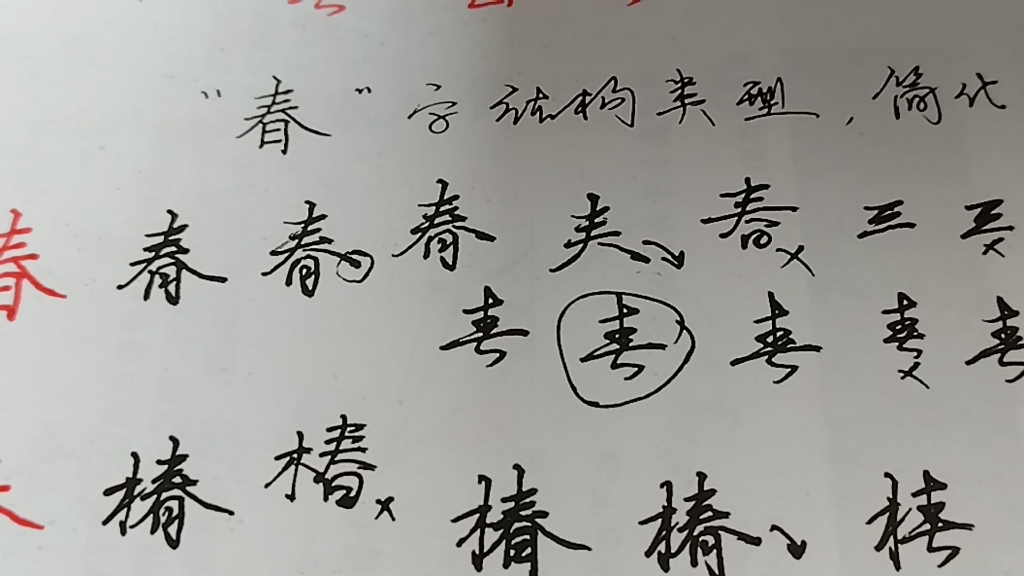 “春”字结构类型，简化
春 春 春 春 夫 春 三 三
春 春 春 春 春
椿 椿 椿 椿 椿